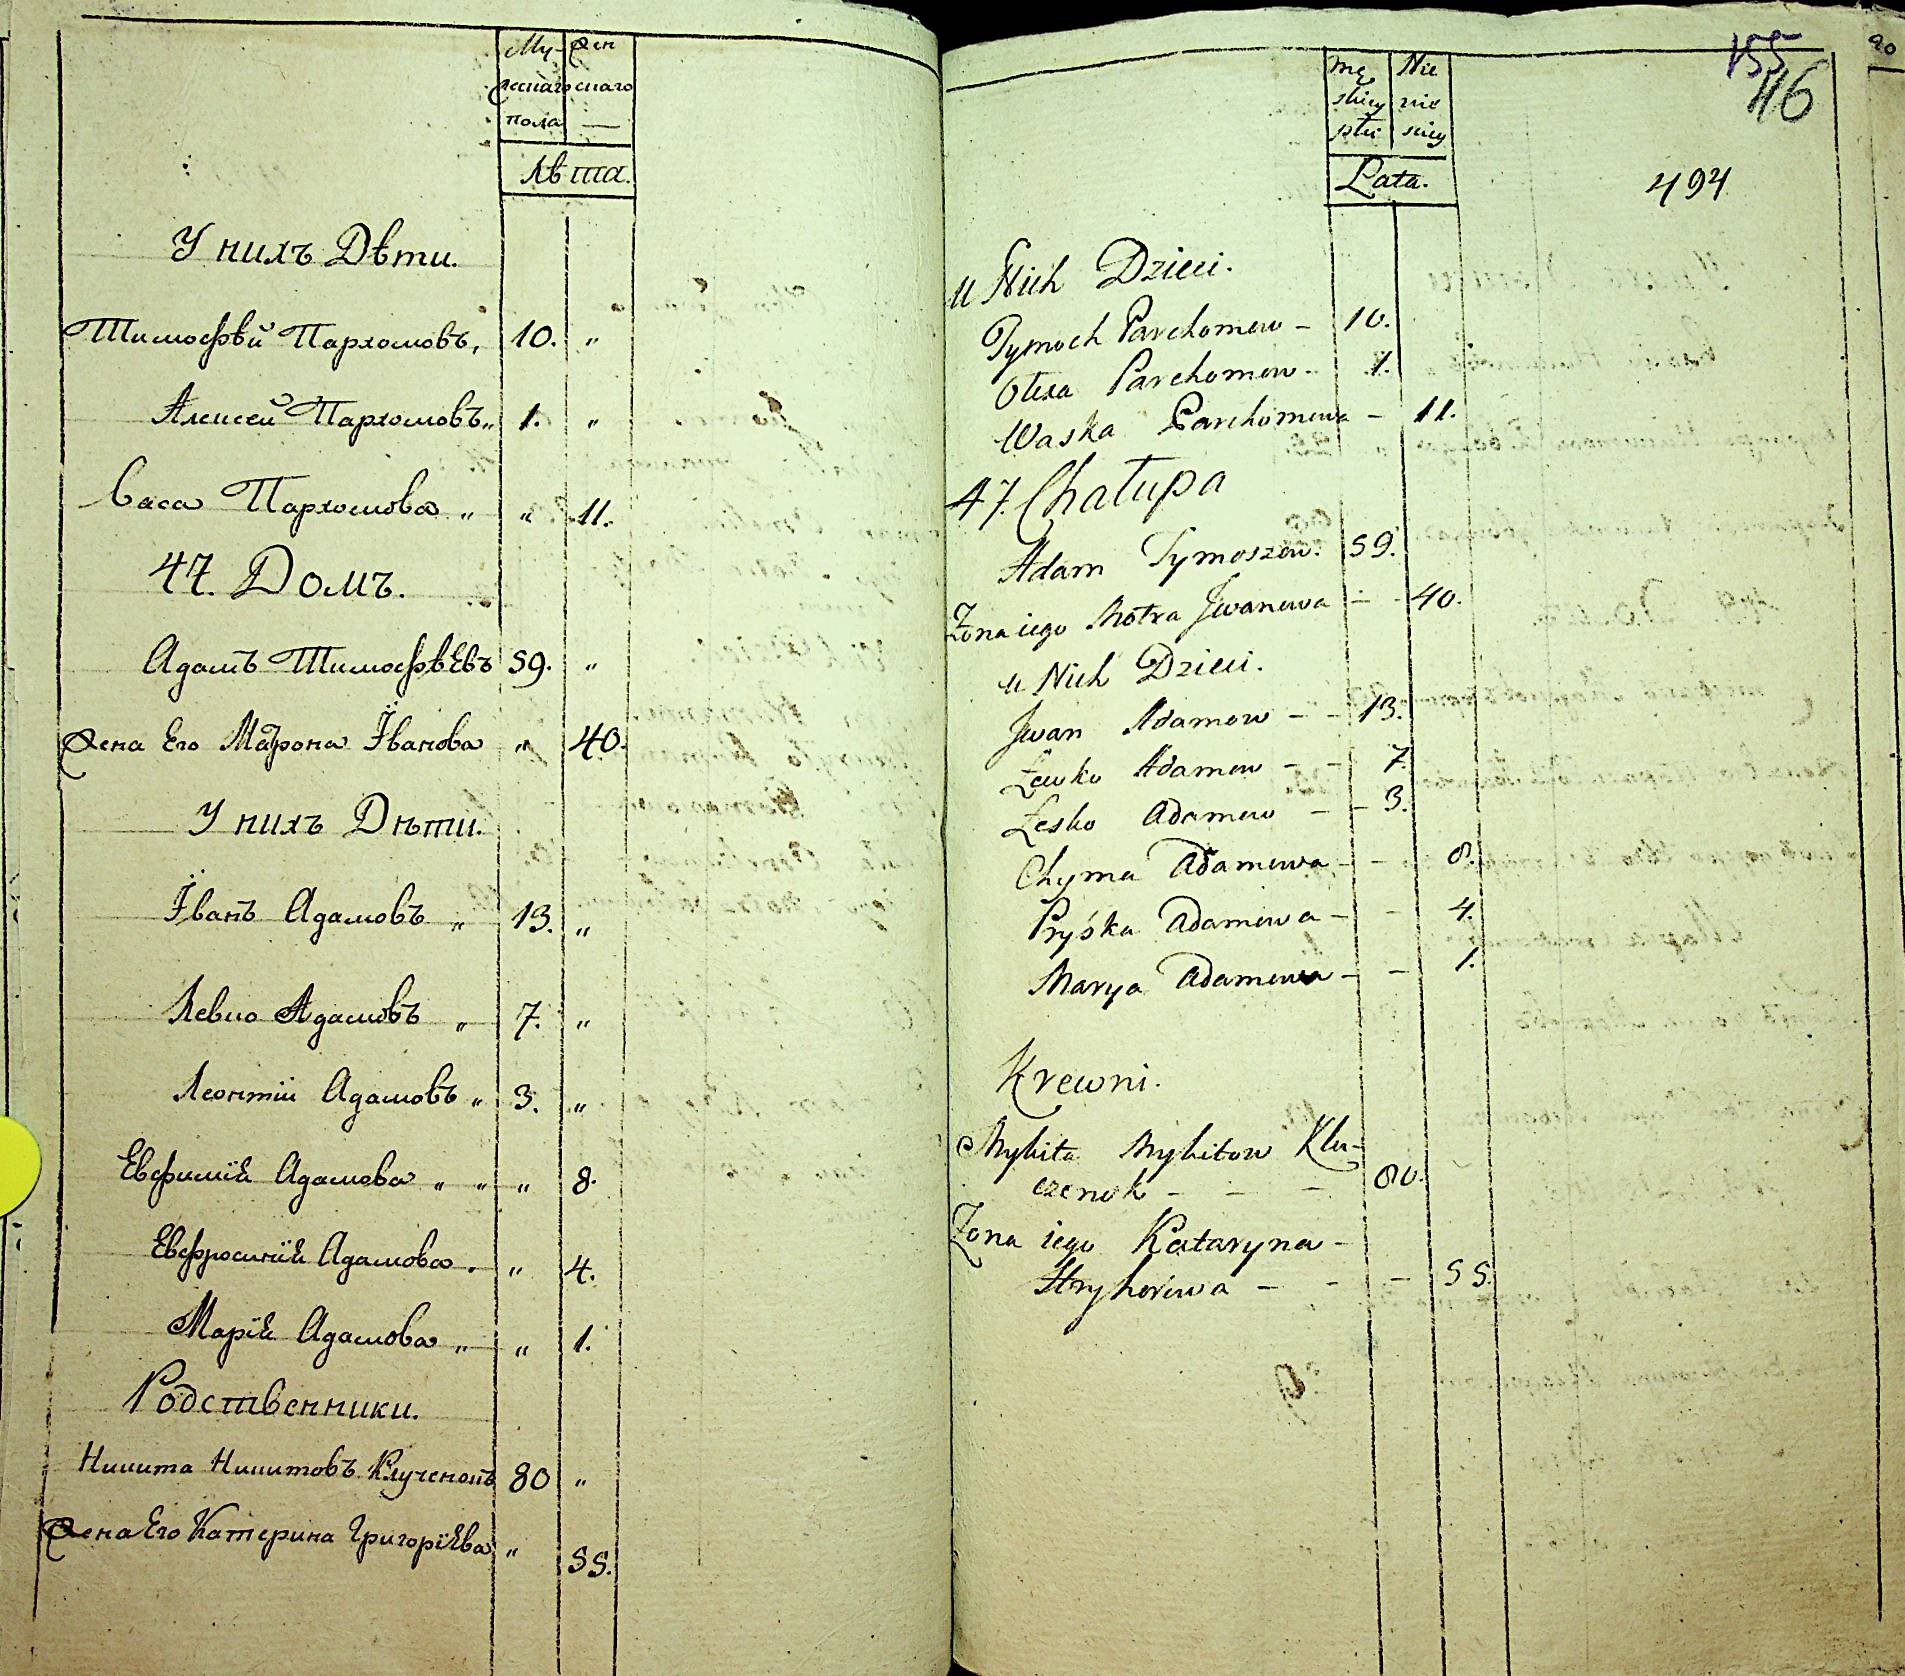 Му- Жен
жескаго скаго
пола —
Лѣта.
У нихъ Дѣти.
Тимофѣй Пархомовъ, 10. „
Алексей Пархомовъ „ 1. „
Васа Пархомова „ „ 11.
47. Домъ.
Адамъ ТимофѣЕвъ 59. „
Жена Его Матрона Їванова „ 40.
У нихъ Дѣти.
Їванъ Адамовъ „ 13. „
Левко Адамовъ „ 7. „
Леонтїй Адамовъ „ 3. „
Евфимїѧ Адамова „ „ „ 8.
Евфросинїѧ Адамова „ „ 4.
Марїѧ Адамова „ „ 1.
Родственники.
Никита Никитовъ Клученокъ 80 „
Жена Его Катерина ГригорїЕва „ 55.
155
46
Mę Nie
skiey wie
płci skiey
Lata.
494
u Nich Dzieci.
Tymoch Parchomow – 10.
Olexa Parchomow – 1.
Waska Parchomowa – 11.
47. Chałupa
Adam Tymoszow. 59.
Żona iego Motra Jwanowa – - 40.
u Nich Dzieci.
Jwan Adamow – – 13.
Lewko Adamow – – 7.
Lesko Adamow – – 3.
Chyma Adamowa – – 8.
Pryśka Adamowa – – 4.
Marya Adamowa – – 1.
Krewni.
Mykita Mykitow Klu-
czenok – – – 80.
Żona iego Kataryna –
Hryhorowa – – – 55.